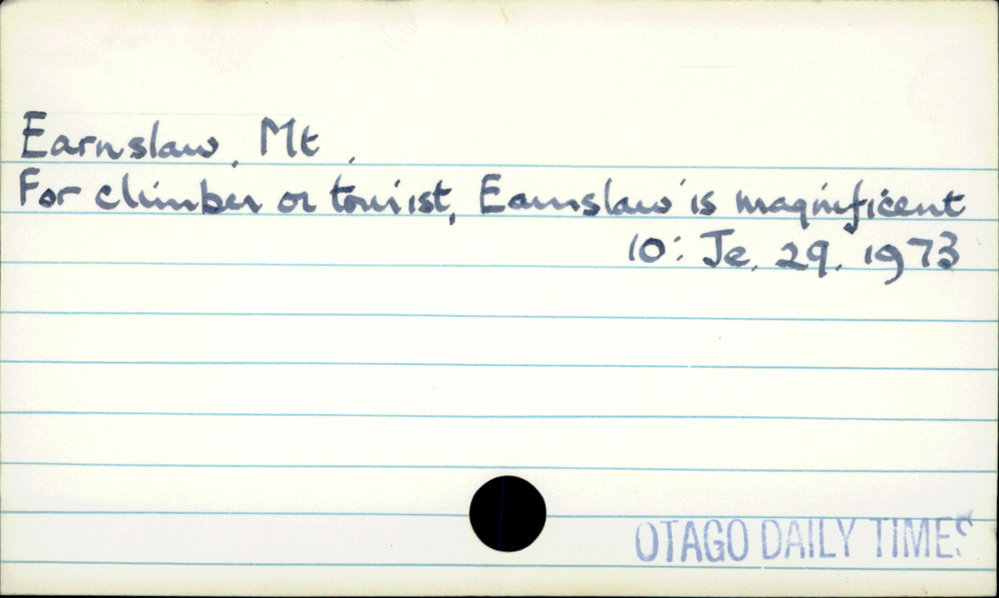 Earnslaw, Mt.
For climber or tourist, Earnslaw is magnificent
10: Je. 29. 1973
OTAGO DAILY TIMES